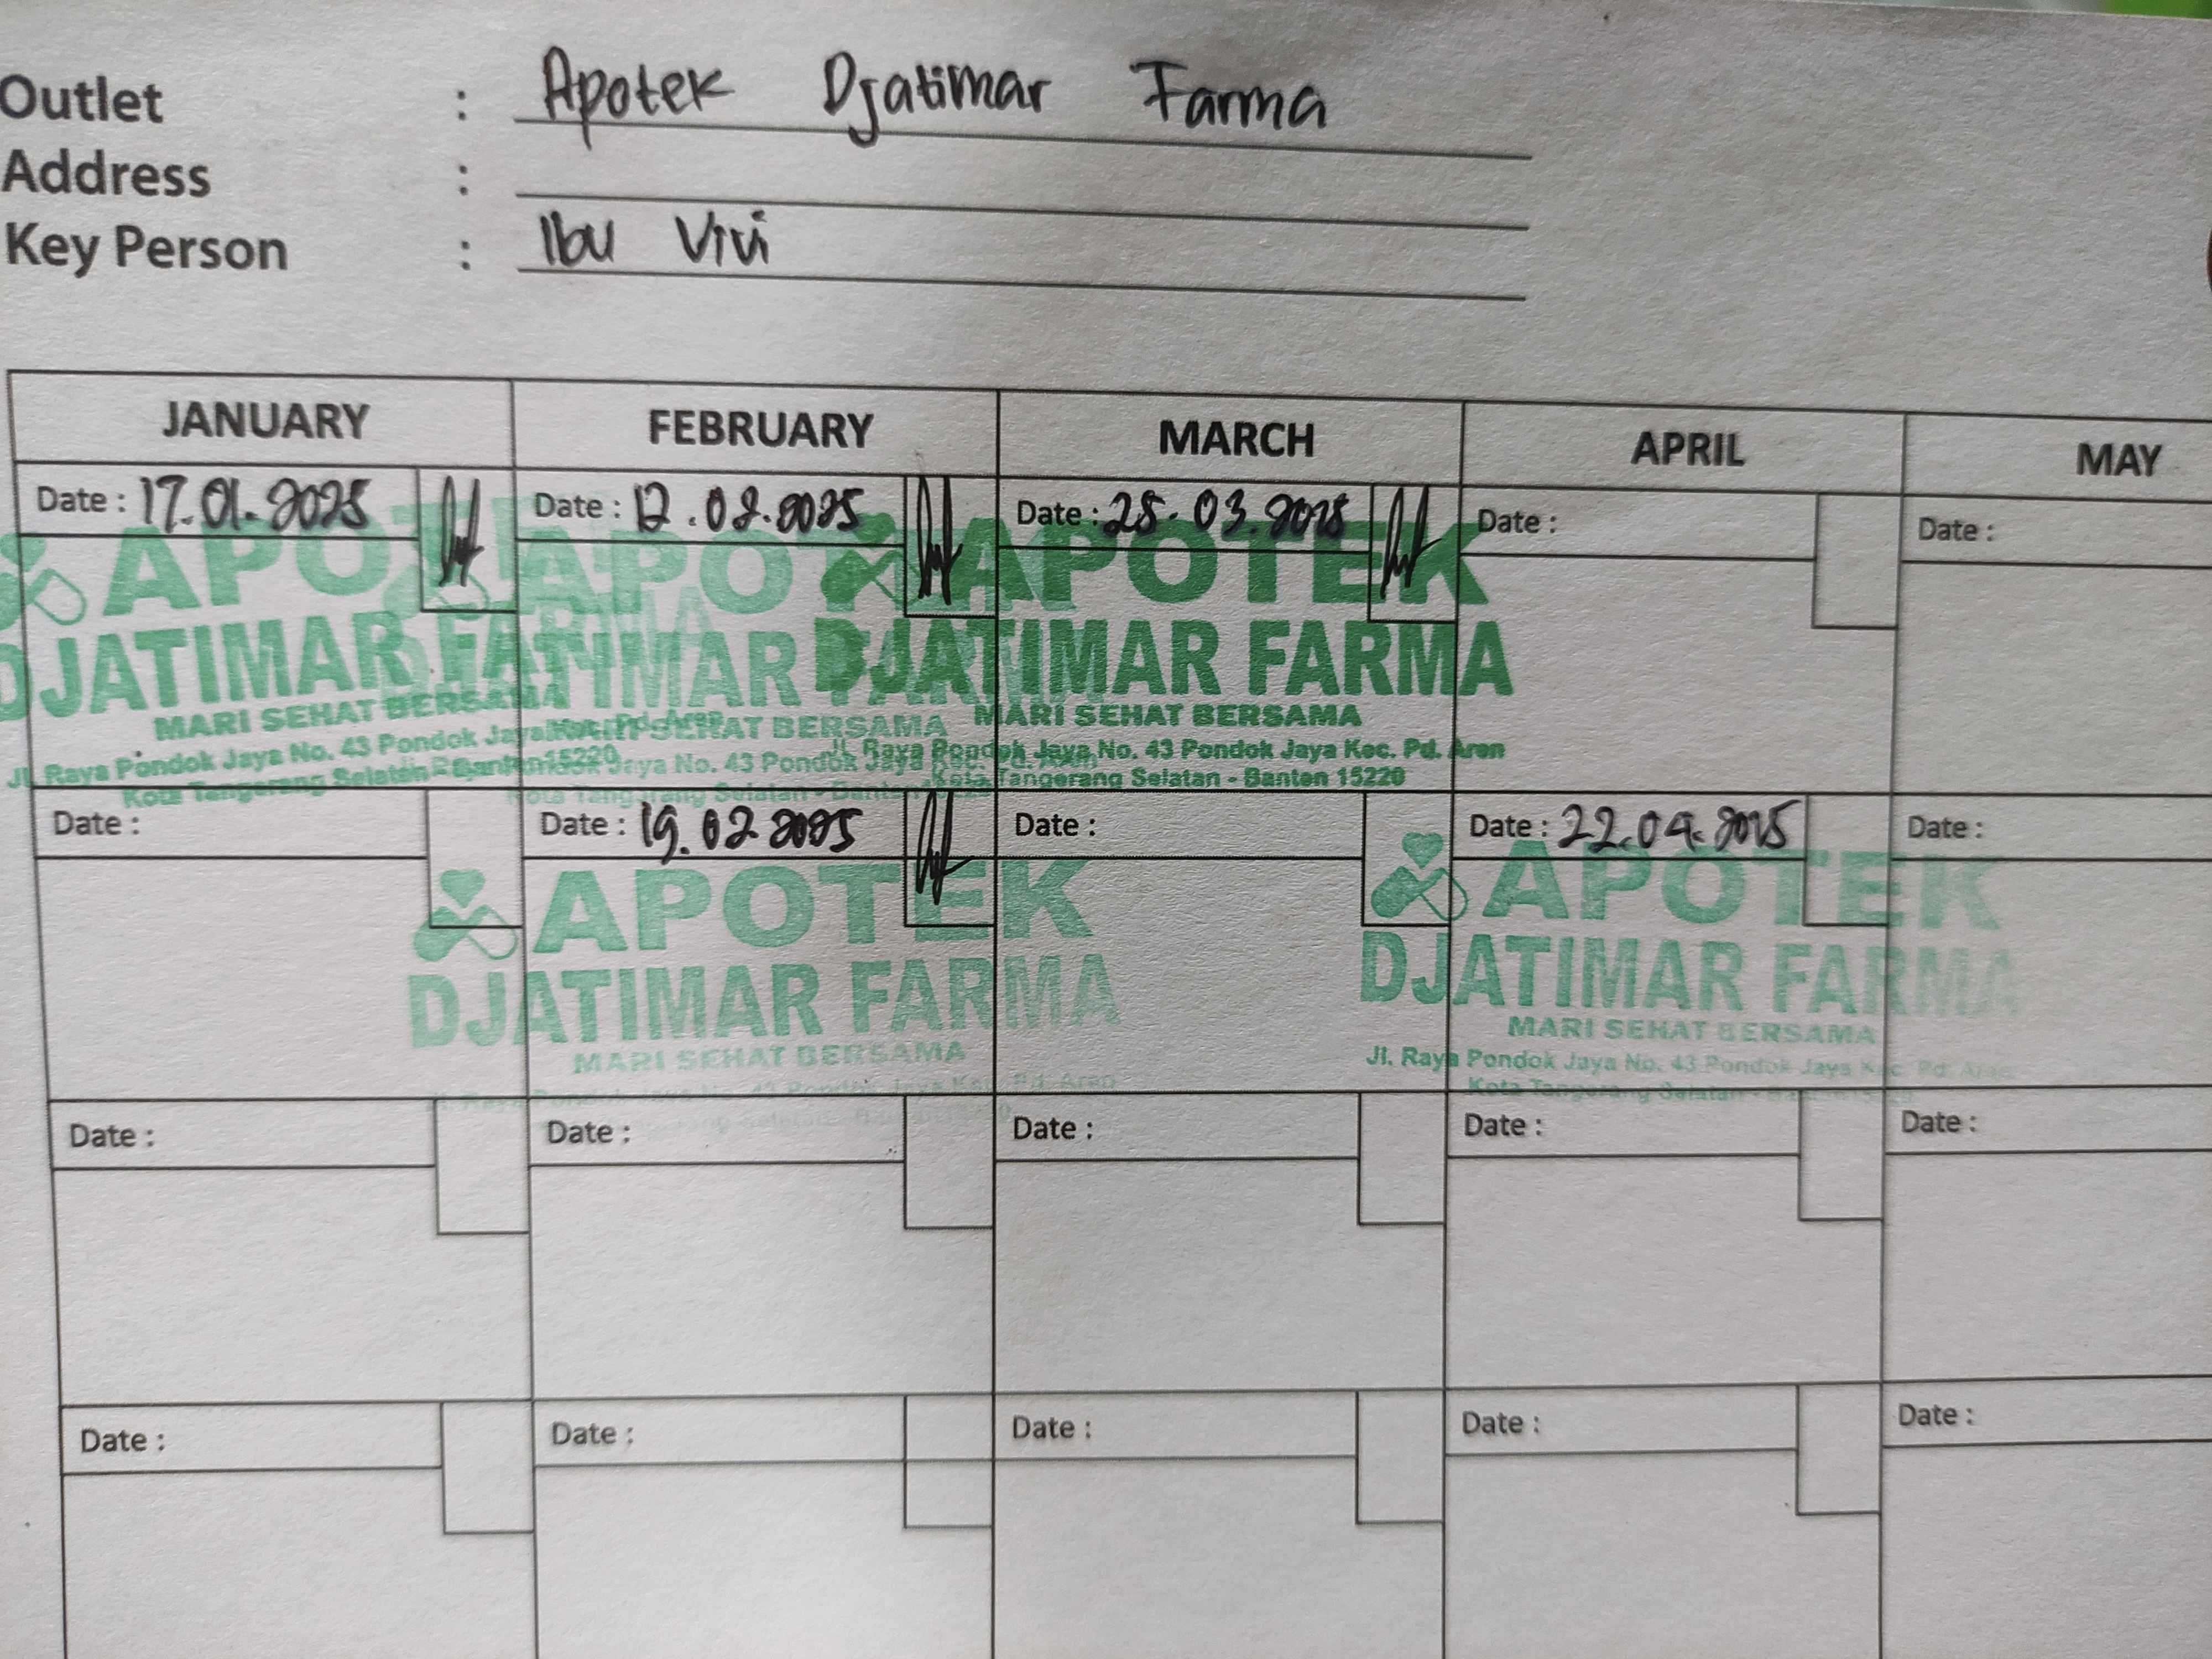 Outlet : Apotek Djatimar Farma
Address :
Key Person : Ibu Vivi
JANUARY FEBRUARY MARCH APRIL MAY
Date : 17.01.2025 Date : 12.02.2025 Date : 25.03.2025 Date : Date :
APOTEK APOTEK
DJATIMAR FARMA DJATIMAR FARMA DJATIMAR FARMA
MARI SEHAT BERSAMA SEHAT BERSAMA MARI SEHAT BERSAMA
Jl. Raya Pondok Jaya No. 43 Pondok Jaya No. 43 Pondok Jaya Jl. Raya Pondok Jaya No. 43 Pondok Jaya Kec. Pd. Aren
Kota Tangerang Selatan - Banten 15220 Kota Tangerang Selatan - Banten Kota Tangerang Selatan - Banten 15220
Date : Date : 19.02.2025 Date : Date : 22.04.2025 Date :
APOTEK APOTEK
DJATIMAR FARMA DJATIMAR FARMA
MARI SEHAT BERSAMA MARI SEHAT BERSAMA
Jl. Raya Pondok Jaya No. 43 Pondok Jaya Kec. Pd. Aren Jl. Raya Pondok Jaya No. 43 Pondok Jaya Kec. Pd. Aren
Kota Tangerang Selatan
Date : Date : Date : Date : Date :
Date : Date : Date : Date : Date :